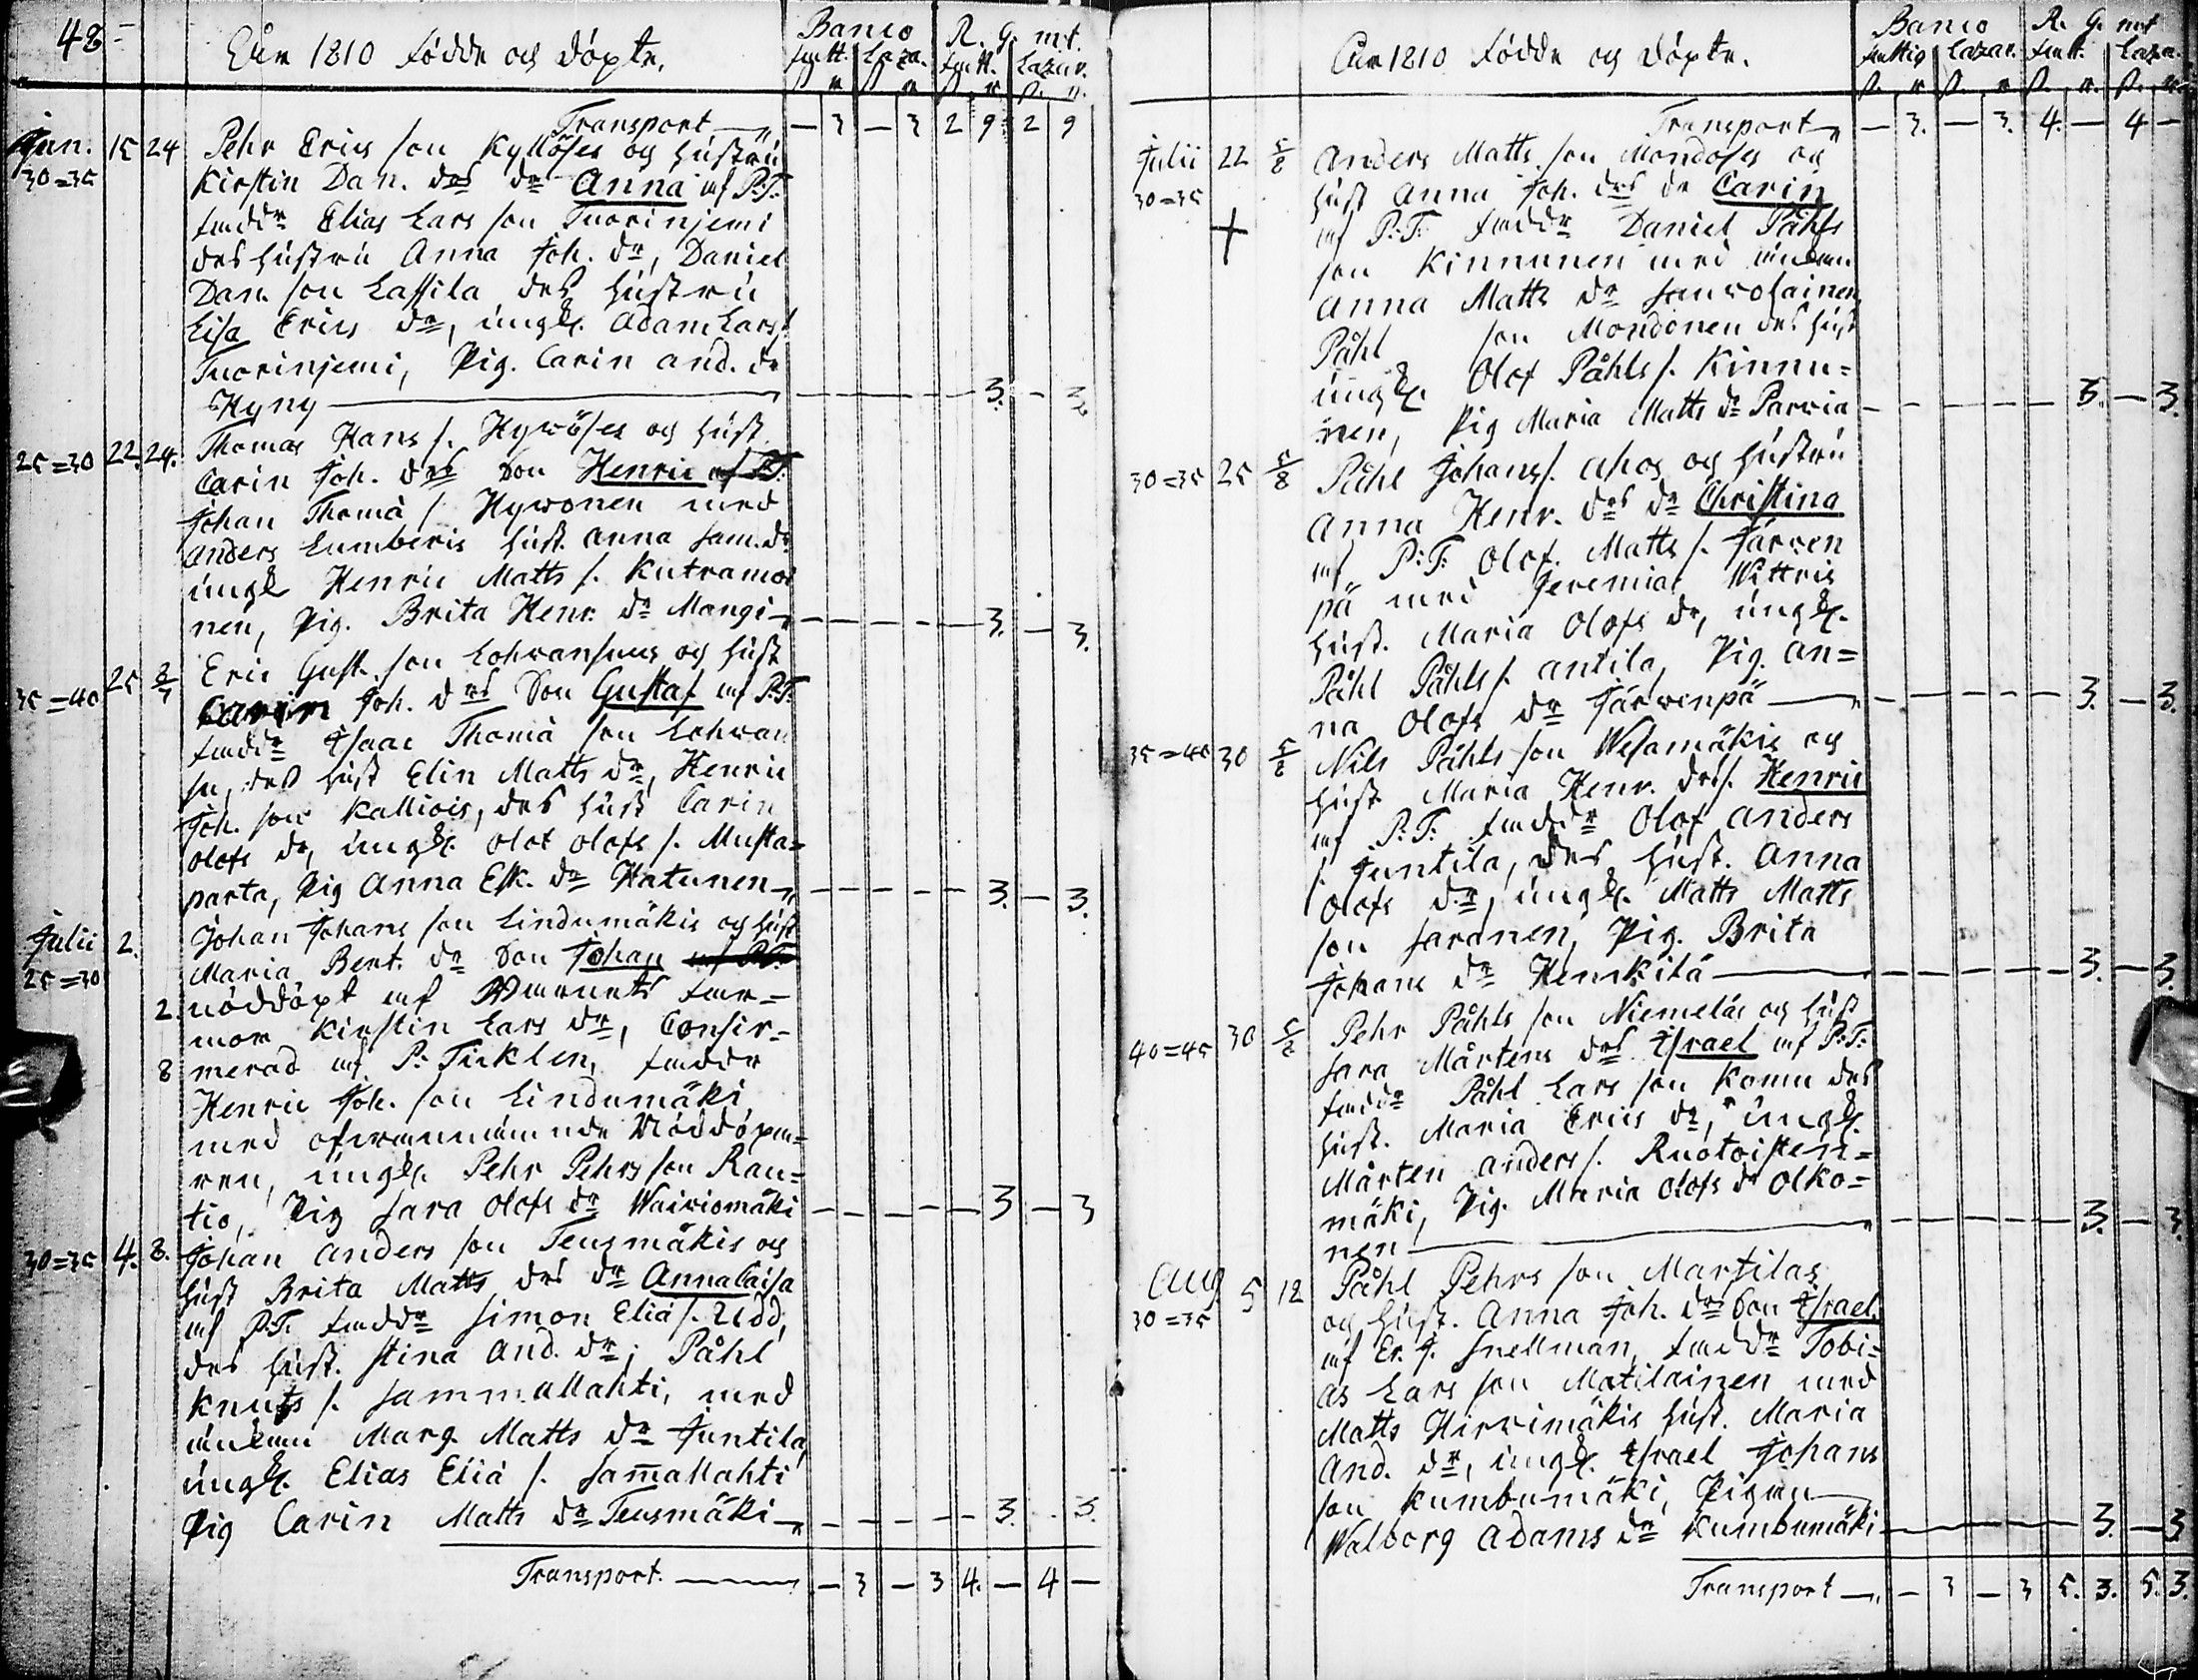 48
Åhr 1810 födde og döpte.
Banco R. G. mt.
fatt. Laza. fatt. Lazar.
Transport — 3 — 3 2 9 2 9
Jun. 15 24 Pehr Erics son Kyllöses og hustru
30=35 Kirstin Dan. drs dr Anna af P:T:
faddr Elias Lars son Tuorinjemi
des hustru Anna Joh. dr, Daniel
Dan. son Lassila des hustru
Lisa Erics dr, ungk. Adam Lars s.
Tuorinjemi, Pig. Carin And. dr
Hyny — 3. — 3.
25=30 22. 24. Thomas Hans s. Hywöses og hust.
Carin Joh. drs Son Henric
Johan Thomä s. Hywonen med
Anders Lumberis hust. Anna Sam. dr
ungk Henric Matts s. Kutramoi
nen, Pig. Brita Henr. dr Mangi — 3. — 3.
35=40 25 2/7 Eric Gust. son Lohwansuus og hust
Carin Joh. drs Son Gustaf af P:T:
faddr Isaac Thomä son Lohwan
su, des hust Elin Matts dr, Henric
Joh. son Kalliois, des hust Carin
Olofs dr, ungk. Olof Olofs s. Musta=
parta, Pig Anna Esk. dr Hatunen — 3. — 3.
Julii 2. Johan Johans son Lindumäkis og hust
25=30 Maria Bent. dr Son Johan
2. nöddöpt af Barnets far=
mor Kirstin Lars dr, Confir=
8 merad af P: Ticklen, faddr
Henric Joh. son Lindumäki
med ofwannämnde Nöddöpa=
ren, ungk. Pehr Pehrs son Rau=
tio, Pig Sara Olofs dr Waiwiomäki — 3 — 3
30=35 4. 8. Johan Anders son Teusmäkis og
hust Brita Matts drs dr Anna Caisa
af P:T: faddr Simon Eliä s. Udd,
des hust. Stina And. dr; Påhl
Knuts s. Sammallahti, med
änkan Marg. Matts dr Juntila,
ungk. Elias Eliä s. Sam̅allahti
Pig Carin Matts dr Teusmäki — 3. 3.
Transport. — 3 — 3 4. — 4 —
Åhr 1810 födde og döpte.
Banco R. G. mt
fattig Lazar. fatt. Laza.
Transport — 3. — 3. 4. — 4 —
Julii 22 5/8 Anders Matts son Mondoses og
30=35 hust Anna Joh. drs dr Carin
+ af P:T: faddr Daniel Påhls
son Kinnunen med änkan
Anna Matts dr Saurosainen
Påhl son Mondonen des hust
ungk. Olof Påhls s. Kinnu=
nen, Pig Maria Matts dr Parvia
nen — 3. — 3.
30=35 25 5/8 Påhl Johans s. Ahos og hustru
Anna Henr. drs dr Christina
af P:T: Olof. Matts s. Järwen
pä med Jeremias Wittris
hust. Maria Olofs dr, ungk.
Påhl Påhls s. Antila, Pig. An=
na Olofs dr Järwenpä — 3. — 3.
35=40 30 5/8 Nils Påhls son Wesamäkis og
hust Maria Henr. drs s. Henric
af P:T: faddr Olof Anders
s. Juntila, des hust. Anna
Olofs dr, ungk. Matts Matts
son Saronen, Pig. Brita
Johans dr Henikilä — 3. — 3.
40=45 30 5/8 Pehr Påhls son Niemeläs og hust
Sara Mårtens drs Israel af P:T:
faddr Påhl Lars son Komu des
hust. Maria Erics dr, ungk.
Mårten Anders s. Ruotoisten=
mäki, Pig. Maria Olofs dr Olko=
nen — 3. — 3.
Aug. 5 12 Påhl Pehrs son Martilas
30=35 og hust. Anna Joh. drs Son Israel.
af Er. J. Snellman, faddr Tobi=
as Lars son Matilainen med
Matts Hirwimäkis hust. Maria
And. dr, ungk. Israel Johans
son Kumbumäki, Pigan
Walborg Adams dr Kumbumäki — 3. — 3
Transport — 3 — 3 5. 3. 5. 3.